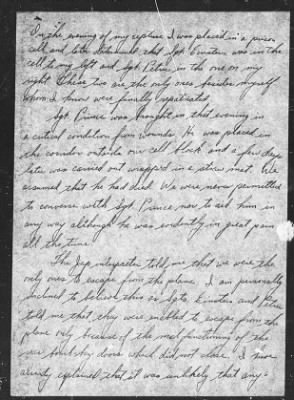 In the evening of my capture I was placed in a prison
cell and later determined that Sgt. was in the
cell to my left and Sgt. Petrie in the one on my
right. These two are the only ones besides myself
whom I know were finally repatriated.
Sgt. Prince was brought in that evening in
a critical condition from wounds. He was placed in
the corridor outside our cell block and a few days
later was carried out wrapped in a straw mat. We
assumed that he had died. We were never permitted
to converse with Sgt. Prince nor to aid him in
any way although he was evidently in great pain
all the time.
The Jap interpreter told me that we were the
only ones to escape from the plane. I am personally
inclined to believe this as Sgts. and Petrie
told me that they were enabled to escape from the
plane only because of the malfunctioning of the
rear bomb bay doors which did not close. I have
already explained that it was unlikely that any-